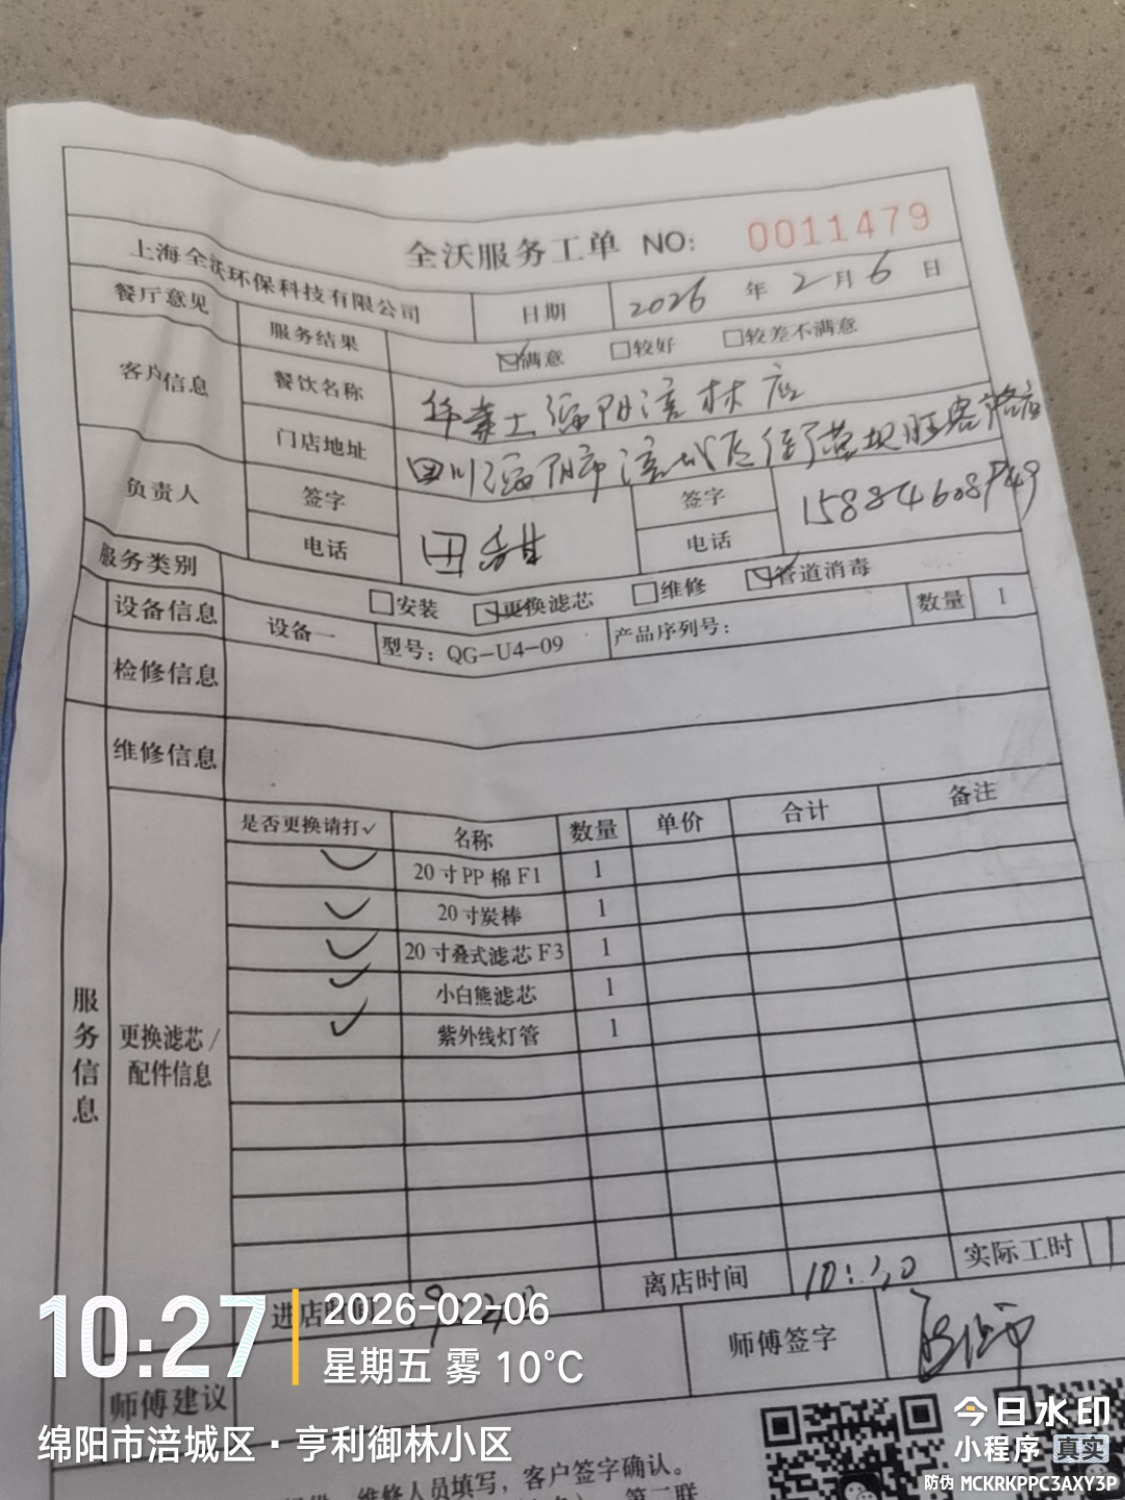 全沃服务工单 NO: 0011479
上海全沃环保科技有限公司 日期 2026 年 2 月 6 日
餐厅意见 服务结果 ☑满意 □较好 □较差不满意
客户信息 餐饮名称 华莱士绵阳涪林店
门店地址 四川绵阳市涪城区
负责人 签字 田甜 签字
电话 电话 15884608849
服务类别 □安装 ☑更换滤芯 □维修 ☑管道消毒
设备信息 设备一 型号：QG-U4-09 产品序列号： 数量 1
检修信息
维修信息
服务信息
更换滤芯/配件信息
是否更换请打✓ 名称 数量 单价 合计 备注
✓ 20寸PP棉F1 1
✓ 20寸炭棒 1
✓ 20寸叠式滤芯F3 1
✓ 小白熊滤芯 1
✓ 紫外线灯管 1
进店时间 离店时间 10:20 实际工时 1
师傅签字
师傅建议
维修人员填写，客户签字确认。
第二联
10:27
2026-02-06
星期五 雾 10°C
绵阳市涪城区·亨利御林小区
今日水印
小程序 真实
防伪 MCKRKPPC3AXY3P